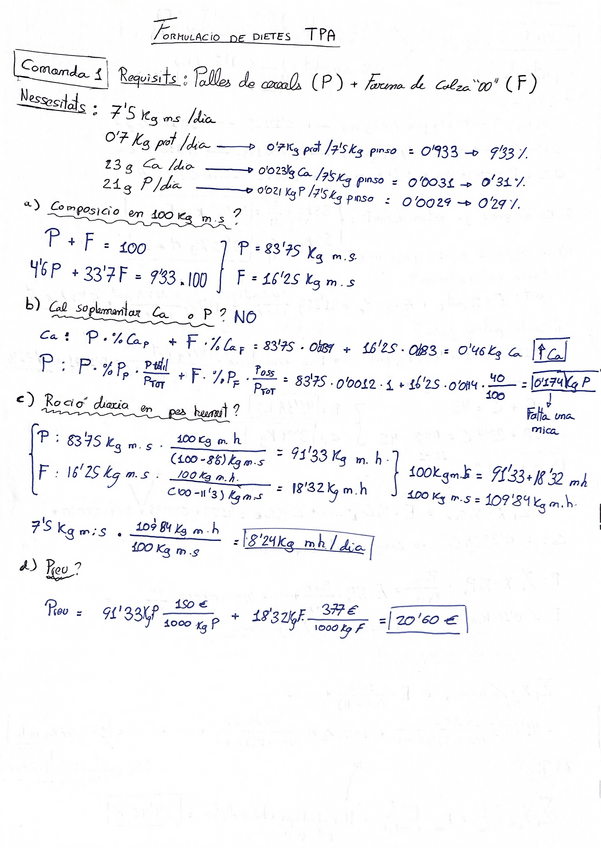 FORMULACIO DE DIETES TPA
Comanda 1 Requisits: Palles de cereals (P) + Farina de Colza "00" (F)
Nessesitats: 7'5 Kg ms /dia
0'7 Kg prot /dia → 0'7Kg prot /7'5Kg pinso = 0'933 → 9'33 %
23 g Ca /dia → 0'023Kg Ca /7'5Kg pinso = 0'0031 → 0'31 %
21 g P/dia → 0'021 Kg P /7'5Kg pinso = 0'0029 → 0'29 %
a) Composicio en 100 Kg m.s ?
P + F = 100
P = 83'75 Kg m.s.
4'6P + 33'7F = 9'33.100
F = 16'25 Kg m.s
b) Cal suplementar Ca o P? NO
Ca: P · %Ca P + F · %Ca F = 83'75 · + 16'25 · = 0'46 Kg Ca ↑ Ca
P: P · %P P · P útil / P TOT + F · %P F · P oss / P TOT = 83'75 · 0'0012 · 1 + 16'25 · 0'0114 · 40/100 = 0'174 Kg P
Falta una
mica
c) Ració diaria en pes humit?
P: 83'75 Kg m.s · 100 Kg m.h / (100-) Kg m.s = 91'33 Kg m.h.
F: 16'25 Kg m.s · 100 Kg m.h. / (100-11'3) Kg m.s = 18'32 Kg m.h
100Kg m.s = 91'33+18'32 mh
100 Kg m.s = 109'84 Kg m.h.
7'5 Kg m.s · 109'84 Kg m.h / 100 Kg m.s = 8'24 Kg mh / dia
d) Preu?
Preu = 91'33 Kg P 150 € / 1000 Kg P + 18'32 Kg F. 377 € / 1000 Kg F = 20'60 €